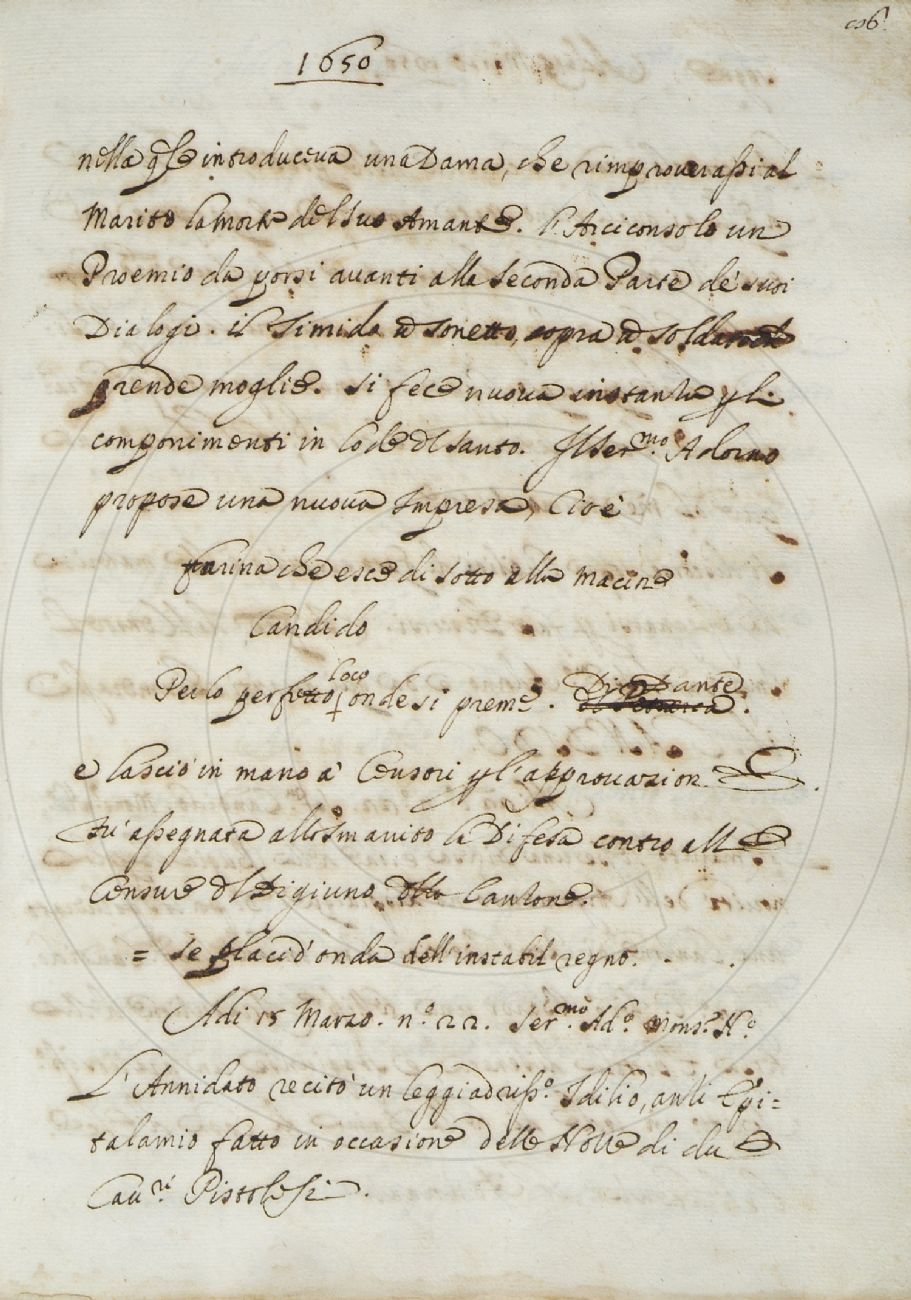 106
1650
nella qle introduceva una Dama, che rimproverassi al
Marito la morte del suo Amante. l'Arciconsolo un
Proemio da porsi avanti alla seconda Parte de' suoi
Dialogi. il Timido
prende moglie. Si fece nuova instantia p li
componimenti in lode dl santo. Il Ser.mo Adorno
propose una nuova Impresa, Cioè
farina che esce di sotto alla macine
Candido
Per lo perfetto loco onde si preme. Di Dante
e lasciò in mano a' Censori p l'approvazion
fu assegnata allo Smarrito la Difesa contro alle
Censure dl Digiuno Canzone.
= Se placid' onda dell' instabil regno.
Adi 15 Marzo. n.o 22. Ser.mo Ad.o Mons.r N.o
L'Annidato recitò un leggiadriss.o Idilio, anzi Epi=
talamio fatto in occasione delle Nozze di due
Cav.ri Pistolesi.